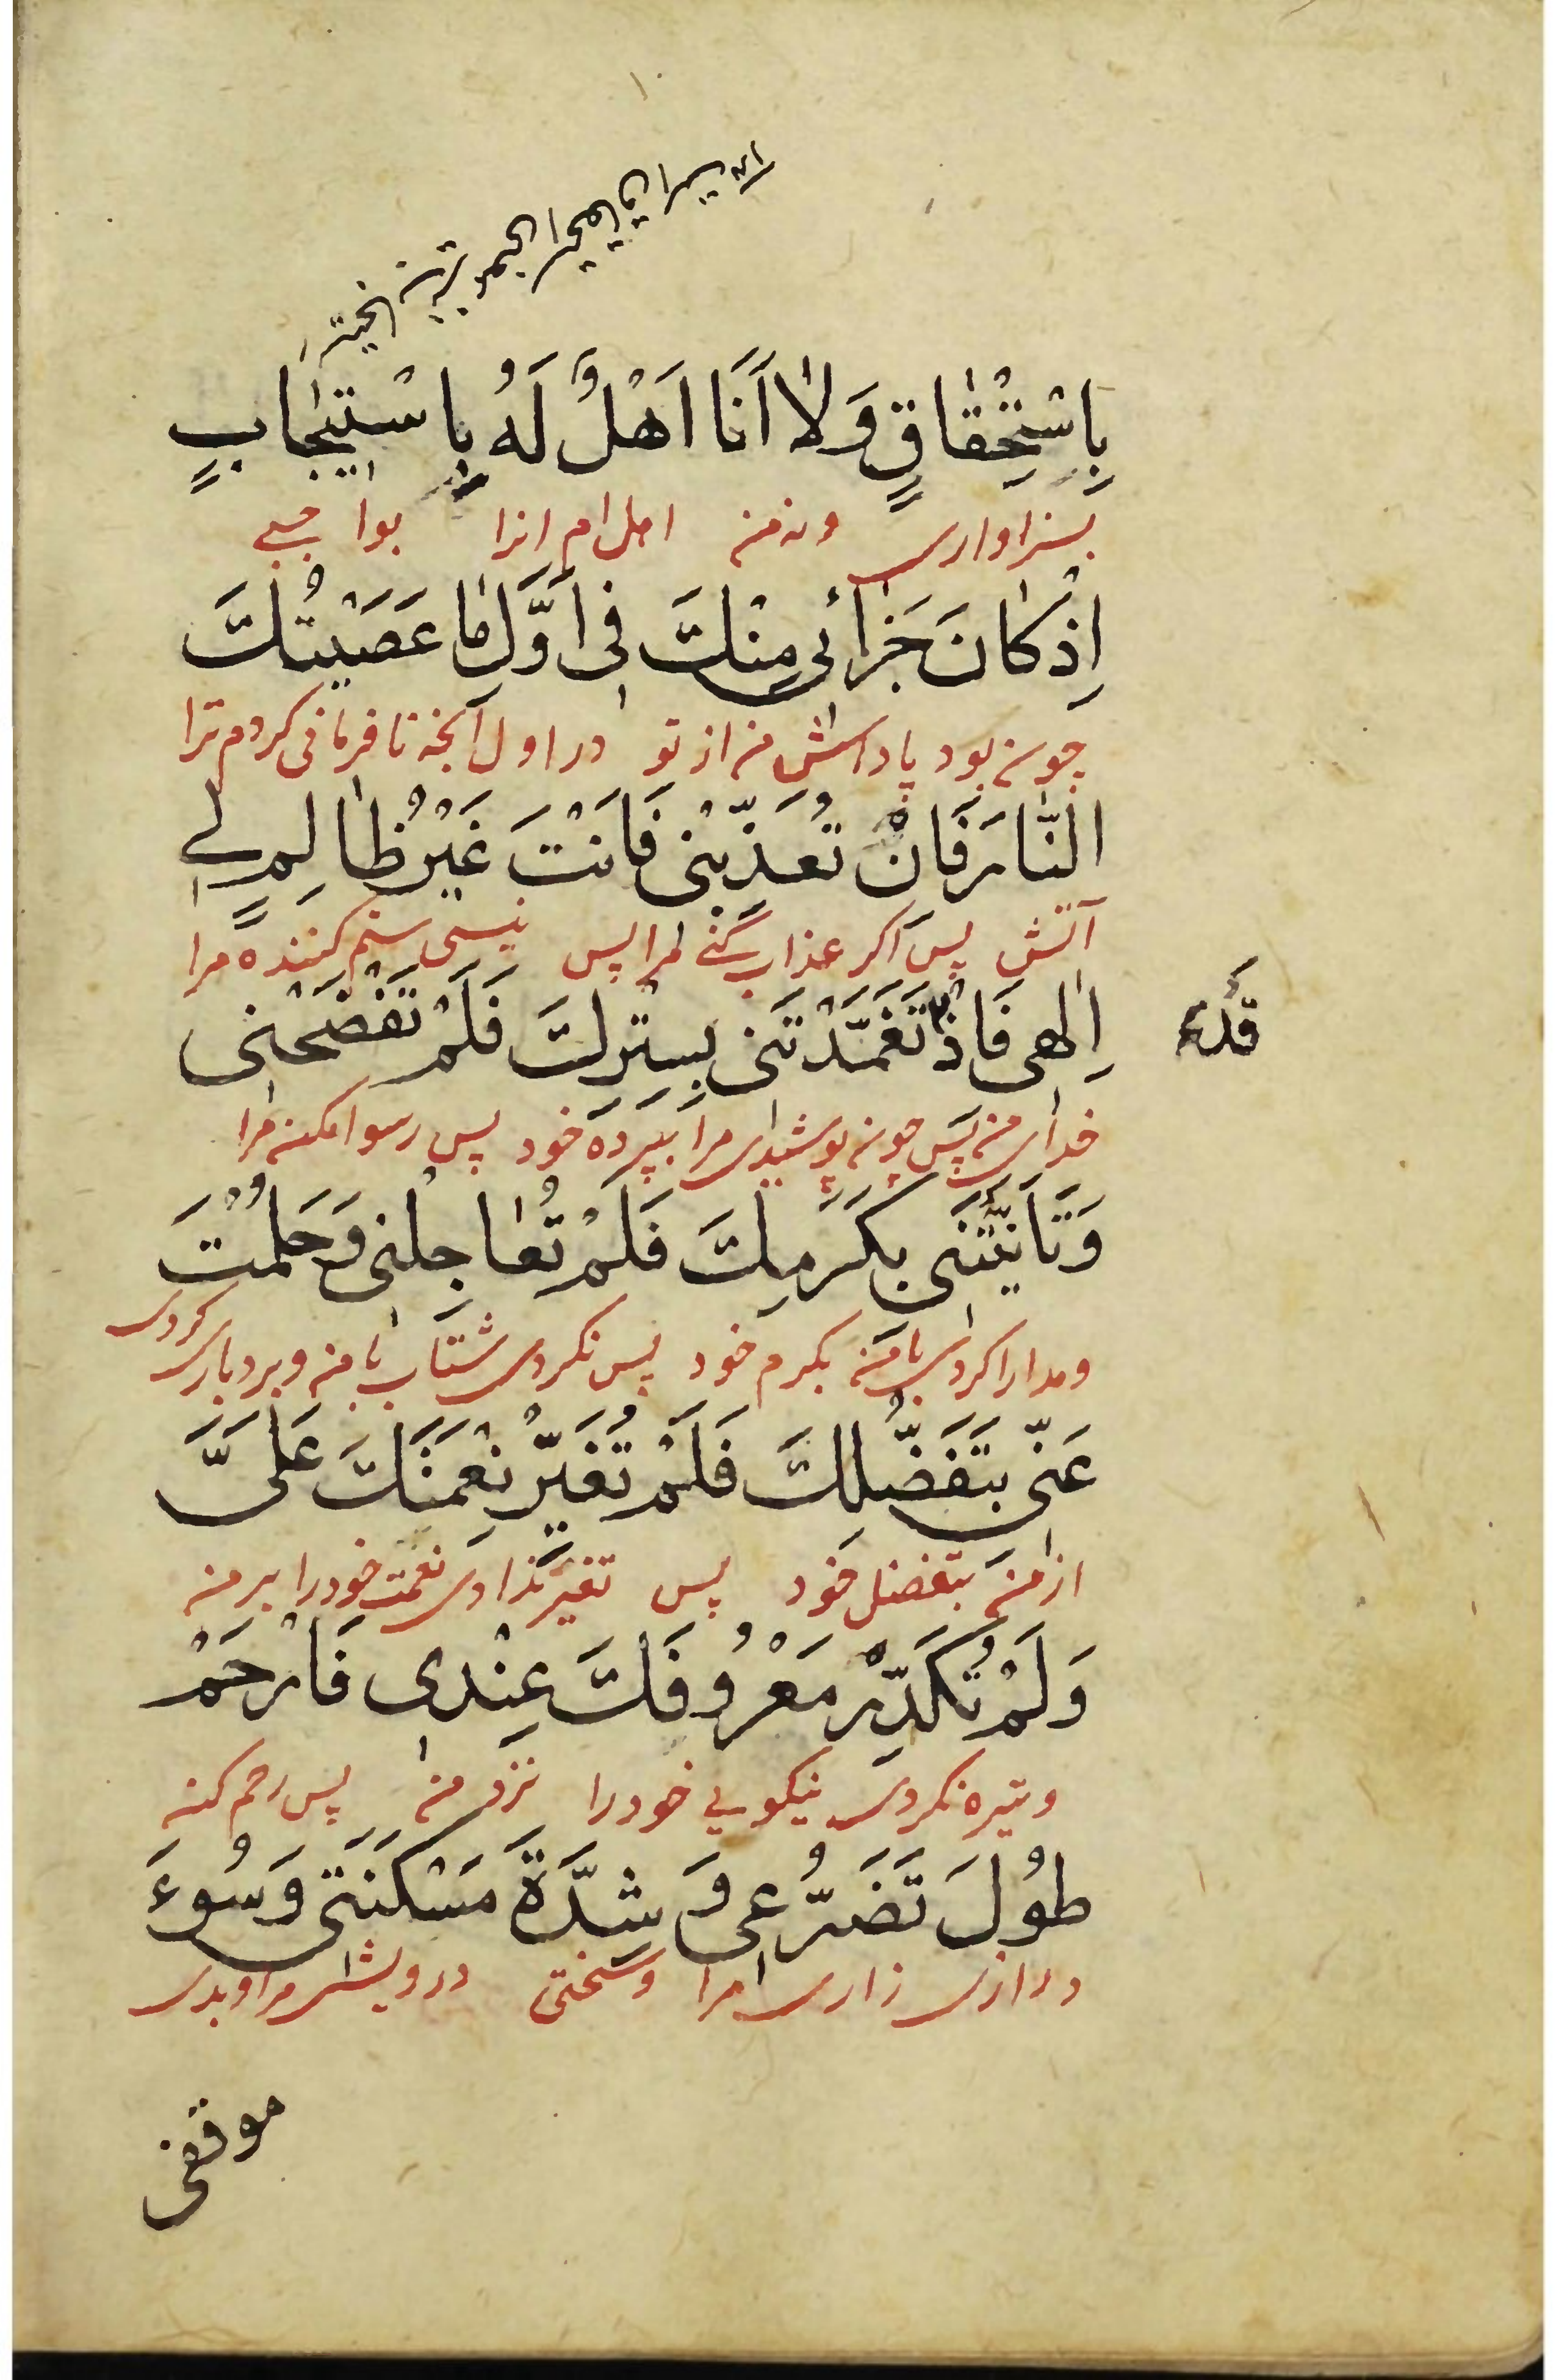 ۱۰
بِاسْتِحْقٰاقٍ وَلٰا اَنَا اَهْلٌ لَهُ بِاسْتيجٰابٍ
بسزاواری ونه من اهل ام انرا بواجبی
اِذْ كٰانَ جَزٰائی مِنْكَ فی اَوَّلِ مٰا عَصَيْتُكَ
چون بود پاداش من از تو در اول آنچه نافرمانی کردم ترا
النّٰارَ فَاِنْ تُعَذِّبْنی فَاَنْتَ غَيْرُ ظٰالِمٍ لی
آتش پس اگر عذاب کنی مرا پس نیستی ستم کننده مرا
اِلٰهی فَاِذْ تَغَمَّدْتَنی بِسِتْرِكَ فَلَمْ تَفْضَحْنی
قَدْ
خدای من پس چون پوشیدی مرا بپرده خود پس رسوا مکن مرا
وَتَاَنَّيْتَنی بِكَرَمِكَ فَلَمْ تُعٰاجِلْنی وَحَلُمْتَ
ومدارا کردی با من بکرم خود پس نکردی شتاب با من وبردباری کردی
عَنّی بِتَفَضُّلِكَ فَلَمْ تُغَيِّرْ نِعْمَتَكَ عَلَیَّ
از من بتفضل خود پس تغیر ندادی نعمت خود را بر من
وَلَمْ تُكَدِّرْ مَعْرُوفَكَ عِنْدی فَارْحَمْ
وتیره نکردی نیکویی خود را نزد من پس رحم کن
طُولَ تَضَرُّعی وَشِدَّةَ مَسْكَنَتی وَسُوءَ
درازی زاری مرا وسختی درویشی مرا وبدی
موقفی